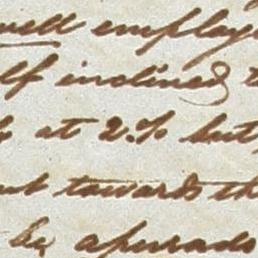 well employ
lf inclined t
at 2.% but
but towards th
be apurado